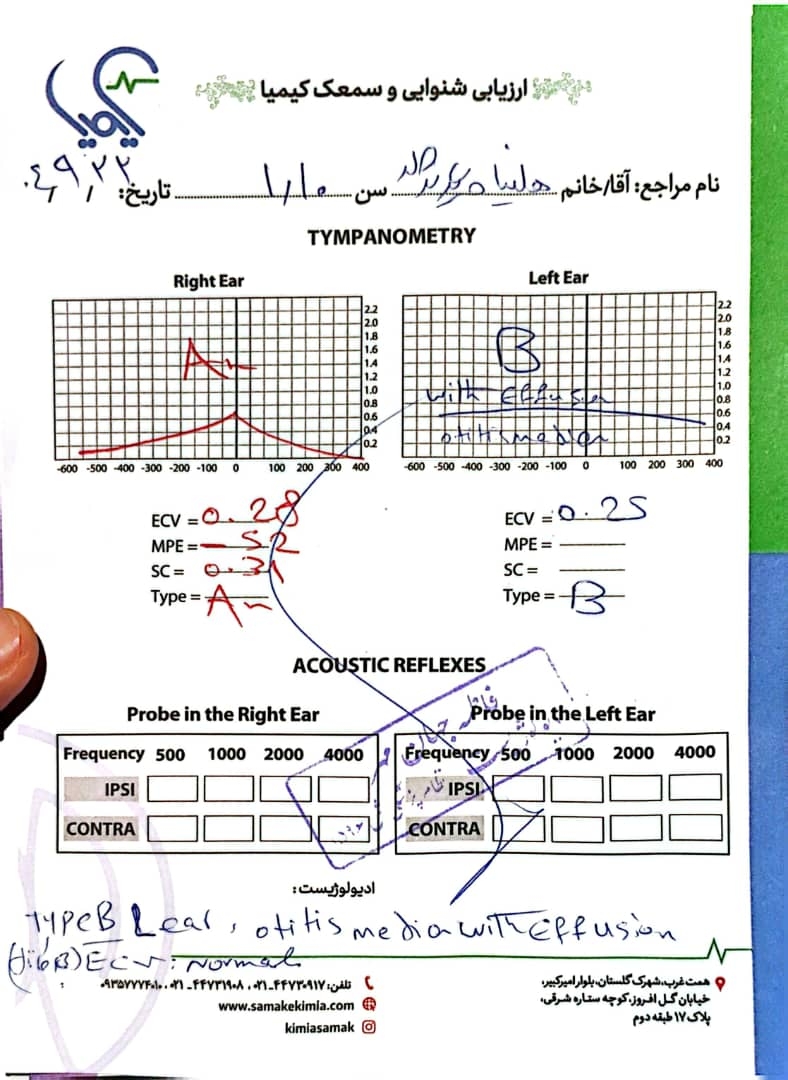 کیمیا
ارزیابی شنوایی و سمعک کیمیا
نام مراجع: آقا/خانم سن ۱۱۰ تاریخ: ۰۴,۹,۲۲
TYMPANOMETRY
Right Ear
An
2.2
2.0
1.8
1.6
1.4
1.2
1.0
0.8
0.6
0.4
0.2
-600 -500 -400 -300 -200 -100 0 100 200 300 400
ECV = 0.28
MPE = -52
SC = 0.31
Type = An
Left Ear
B
with Effusion
otitis media
2.2
2.0
1.8
1.6
1.4
1.2
1.0
0.8
0.6
0.4
0.2
-600 -500 -400 -300 -200 -100 0 100 200 300 400
ECV = 0.25
MPE =
SC =
Type = B
ACOUSTIC REFLEXES
Probe in the Right Ear
Frequency 500 1000 2000 4000
IPSI
CONTRA
Probe in the Left Ear
Frequency 500 1000 2000 4000
IPSI
CONTRA
ادیولوژیست:
Type B L ear, otitis media with Effusion
ECV: Normal
تلفن: ۰۲۱-۴۴۷۳۰۹۱۷ ۰۲۱-۴۴۷۳۱۹۰۸
www.samakekimia.com
kimiasamak
همت غرب، شهرک گلستان، بلوار امیرکبیر،
خیابان گل افروز، کوچه ستاره شرقی،
پلاک ۱۷ طبقه دوم